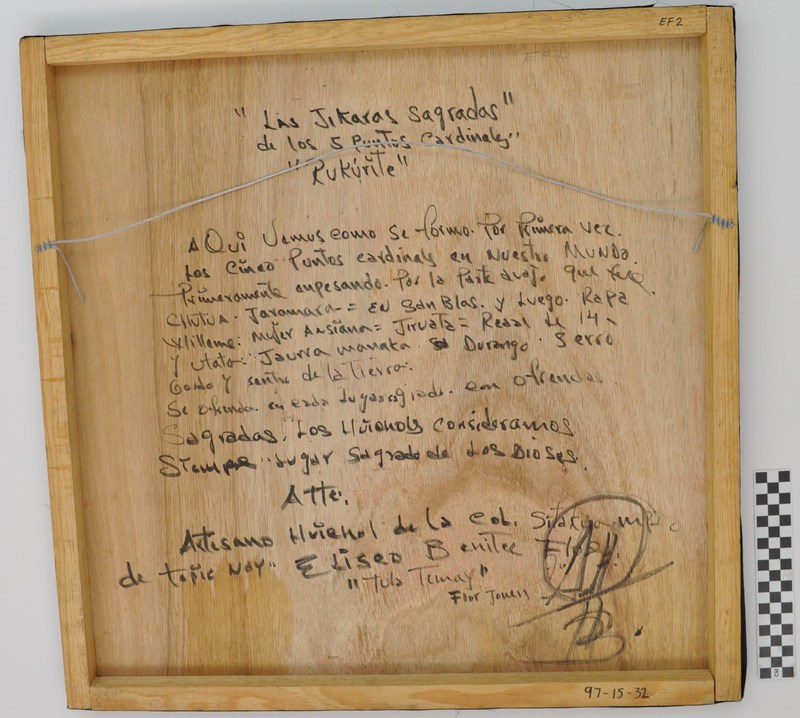 EF2
"Las Jikaras Sagradas"
de los 5 Puntos Cardinales"
"Rukúrite"
AQui Vemus como Se formo. Por Primera vez.
Los Cinco Puntos cardinals en Nuestro MUNDO.
Primeramente enpesando. Por la Parte avajo que
Jaramara = EN San Blas. y Luego. RaPa
Mujer Ansiana = = de 14
y manaka Durango. Serro
Gordo y de la Tierra.
Se ofrenda. en cada con ofrendas.
Sagradas. Los Huichols consideramos
Siempre Lugar Sagrado de Los Dioses.
Atte.
Artesano Huichol de la Col.
de tepic Nay" Eliseo Benitee Flores.
"Tulo Temay"
Flor Joven
97-15-32
CM